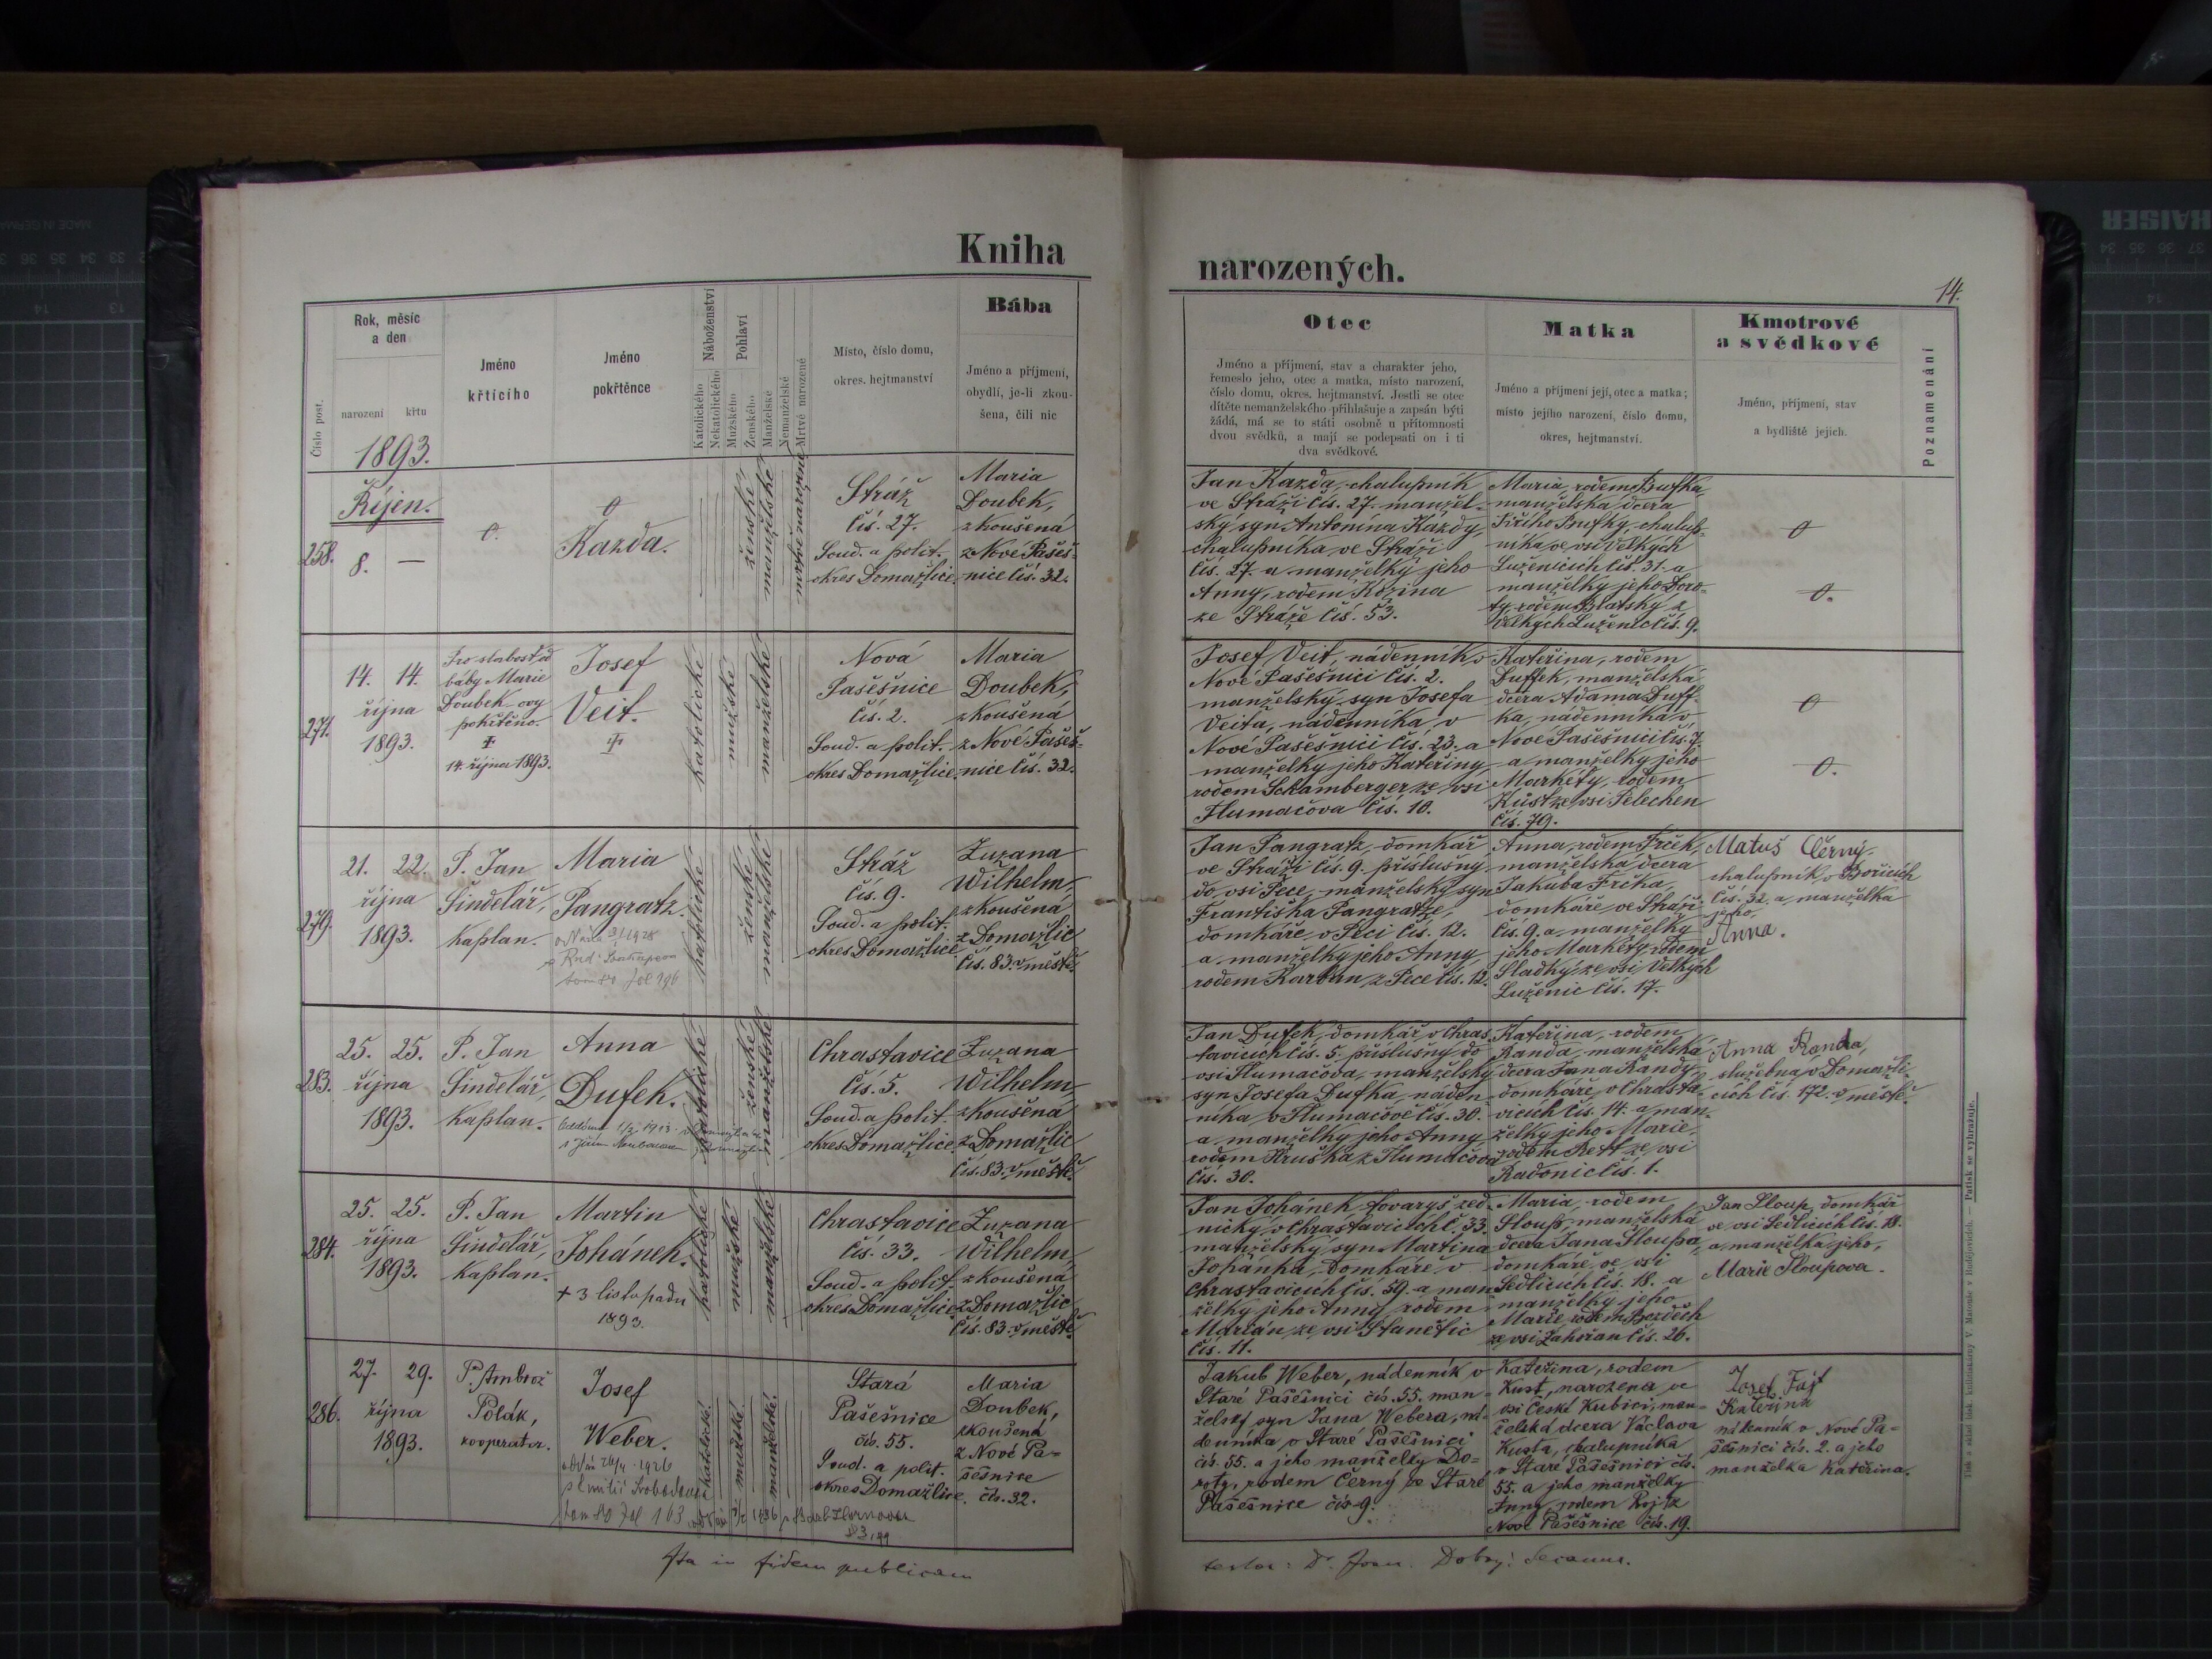 Kniha
narozených.
14.
Číslo post.
Rok, měsíc
a den
narození
křtu
1893.
Jméno
křtícího
Jméno
pokřtěnce
Náboženství
Katolického
Nekatolického
Pohlaví
Mužského
Ženského
Manželské
Nemanželské
Mrtvě narozené
Místo, číslo domu,
okres. hejtmanství
Bába
Jméno a příjmení,
obydlí, je-li zkou-
šena, čili nic
Otec
Jméno a příjmení, stav a charakter jeho,
řemeslo jeho, otec a matka, místo narození,
číslo domu, okres. hejtmanství. Jestli se otec
dítěte nemanželského přihlašuje a zapsán býti
žádá, má se to státi osobně u přítomnosti
dvou svědků, a mají se podepsati on i ti
dva svědkové.
Matka
Jméno a příjmení její, otec a matka;
místo jejího narození, číslo domu,
okres, hejtmanství.
Kmotrové
a svědkové
Jméno, příjmení, stav
a bydliště jejich.
Poznamenání
Říjen.
258.
8. —
Kazda.
ženské
manželské
mrtvě narozené
Stráž
čís. 27.
Soud. a polit.
okres Domažlice
Maria
Doubek,
zkoušená
z Nové Pašeš-
nice čís. 32.
Jan Kazda, chalupník
ve Stráži čís. 27. manžel-
ský syn Antonína Kazdy,
chalupníka ve Stráži
čís. 27. a manželky jeho
Anny, rodem Kozina
ze Stráže čís. 53.
Maria rodem
manželská dcera
Jiřího chalup-
níka ve vsi Velkých
Luženicích čís. 31. a
manželky jeho Doro-
ty, rodem z
Velkých Luženic čís. 9.
271.
14. 14.
října
1893.
Pro slabost od
báby Marie
Doubek
pokřtěno.
14. října 1893.
Josef
Veit.
katolické
mužské
manželské
Nová
Pašešnice
čís. 2.
Soud. a polit.
okres Domažlice
Maria
Doubek,
zkoušená
z Nové Pašeš-
nice čís. 32.
Josef Veit, nádenník v
Nové Pašešnici čís. 2.
manželský syn Josefa
Veita, nádenníka v
Nové Pašešnici čís. 23. a
manželky jeho Kateřiny
rodem Schamberger ze vsi
Tlumačova čís. 10.
Kateřina, rodem
Duffek, manželská
dcera Adama Duff-
ka, nádenníka v
Nové Pašešnici čís. 7.
a manželky jeho
Markéty, rodem
Kůst ze vsi Pelechen
čís. 79.
279.
21. 22.
října
1893.
P. Jan
Šindelář,
kaplan.
Maria
Pangratz.
katolické
ženské
manželské
Stráž
čís. 9.
Soud. a polit.
okres Domažlice
Zuzana
Wilhelm,
zkoušená
z Domažlic
čís. 83. v městě.
Jan Pangratz, domkář
ve Stráži čís. 9. příslušný
do vsi Pece, manželský syn
Františka Pangratze,
domkáře v Peci čís. 12.
a manželky jeho Anny
rodem Karban z Pece čís. 12.
Anna, rodem Frček,
manželská dcera
Jakuba Frčka,
domkáře ve Stráži
čís. 9. a manželky
jeho Markéty, rodem
Sladký ze vsi Velkých
Luženic čís. 17.
Matuš Černý
chalupník v Bořicích
čís. 32. a manželka
jeho,
Anna.
283.
25. 25.
října
1893.
P. Jan
Šindelář,
kaplan.
Anna
Dufek.
katolické
ženské
manželské
Chrastavice
čís. 5.
Soud. a polit.
okres Domažlice
Zuzana
Wilhelm,
zkoušená
z Domažlic
čís. 83. v městě.
Jan Dufek, domkář v Chras-
tavicích čís. 5. příslušný do
vsi Tlumačova, manželský
syn Josefa Dufka, náden-
níka v Tlumačově čís. 30.
a manželky jeho Anny
rodem Hruška z Tlumačova
čís. 30.
Kateřina, rodem
Randa, manželská
dcera Jana Randy,
domkáře v Chrasta-
vicích čís. 14. a man-
želky jeho Marie,
rodem ze vsi
Radonic čís. 1.
Anna Randa,
služebná v Domažli-
cích čís. 172. v městě.
284.
25. 25.
října
1893.
P. Jan
Šindelář,
kaplan.
Martin
Johánek.
+ 3 listopadu
1893.
katolické
mužské
manželské
Chrastavice
čís. 33.
Soud. a polit.
okres Domažlice
Zuzana
Wilhelm,
zkoušená
z Domažlic
čís. 83. v městě
Jan Johánek, tovaryš zed-
nický v Chrastavicích č. 33.
manželský syn Martina
Johánka, domkáře v
Chrastavicích čís. 39. a man-
želky jeho Anny, rodem
Marián ze vsi Stanětic
čís. 11.
Maria, rodem
Sloup, manželská
dcera Jana Sloupa,
domkáře ve vsi
Sedlicích čís. 18. a
manželky jeho
Marie, rodem
ze vsi Zahořan čís. 26.
Jan Sloup, domkář
ve vsi Sedlicích čís. 18.
a manželka jeho,
Marie Sloupova.
286.
27. 29.
října
1893.
P. Ambrož
Polák,
kooperator.
Josef
Weber.
katolické.
mužské.
manželské.
Stará
Pašešnice
čís. 55.
Soud. a polit.
okres Domažlice.
Maria
Doubek,
zkoušená
z Nové Pa-
šešnice
čís. 32.
Jakub Weber, nádenník v
Staré Pašešnici čís. 55. man-
želský syn Jana Webera, ná-
denníka v Staré Pašešnici
čís. 55. a jeho manželky Do-
roty, rodem Černý ze Staré
Pašešnice čís. 9.
Kateřina, rodem
Kust, narozena ve
vsi České Kubici, man-
želská dcera Václava
Kusta, chalupníka
v Staré Pašešnici čís.
55. a jeho manželky
Anny, rodem z
Nové Pašešnice čís. 19.
Josef Fajt
Kateřina
nádeník v Nové Pa-
šešnici čís. 2. a jeho
manželka Kateřina.
Ita in fidem publicam
testor: Dr. Joan. Dobrý: Decanus.